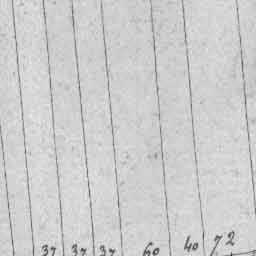 37 37 37 60 40 72